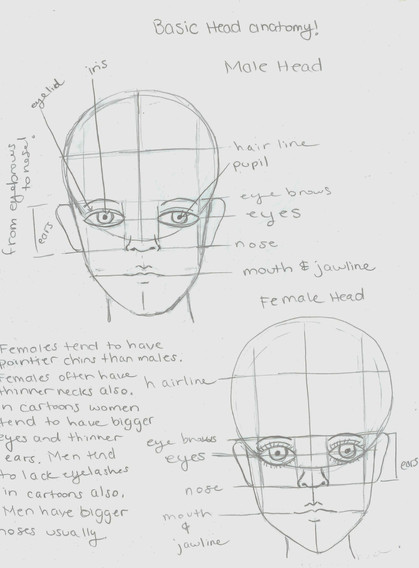 Basic Head anatomy!
Male Head
iris
eyelid
from eyebrows
to nose!
ears
hair line
pupil
eye brows
eyes
nose
mouth & jawline
Female Head
Females tend to have
pointier chins than males.
Females often have
thinner necks also,
in cartoons women
tend to have bigger
eyes and thinner
ears. Men tend
to lack eyelashes
in cartoons also,
Men have bigger
noses usually
hairline
eye brows
eyes
nose
mouth
&
jawline
ears